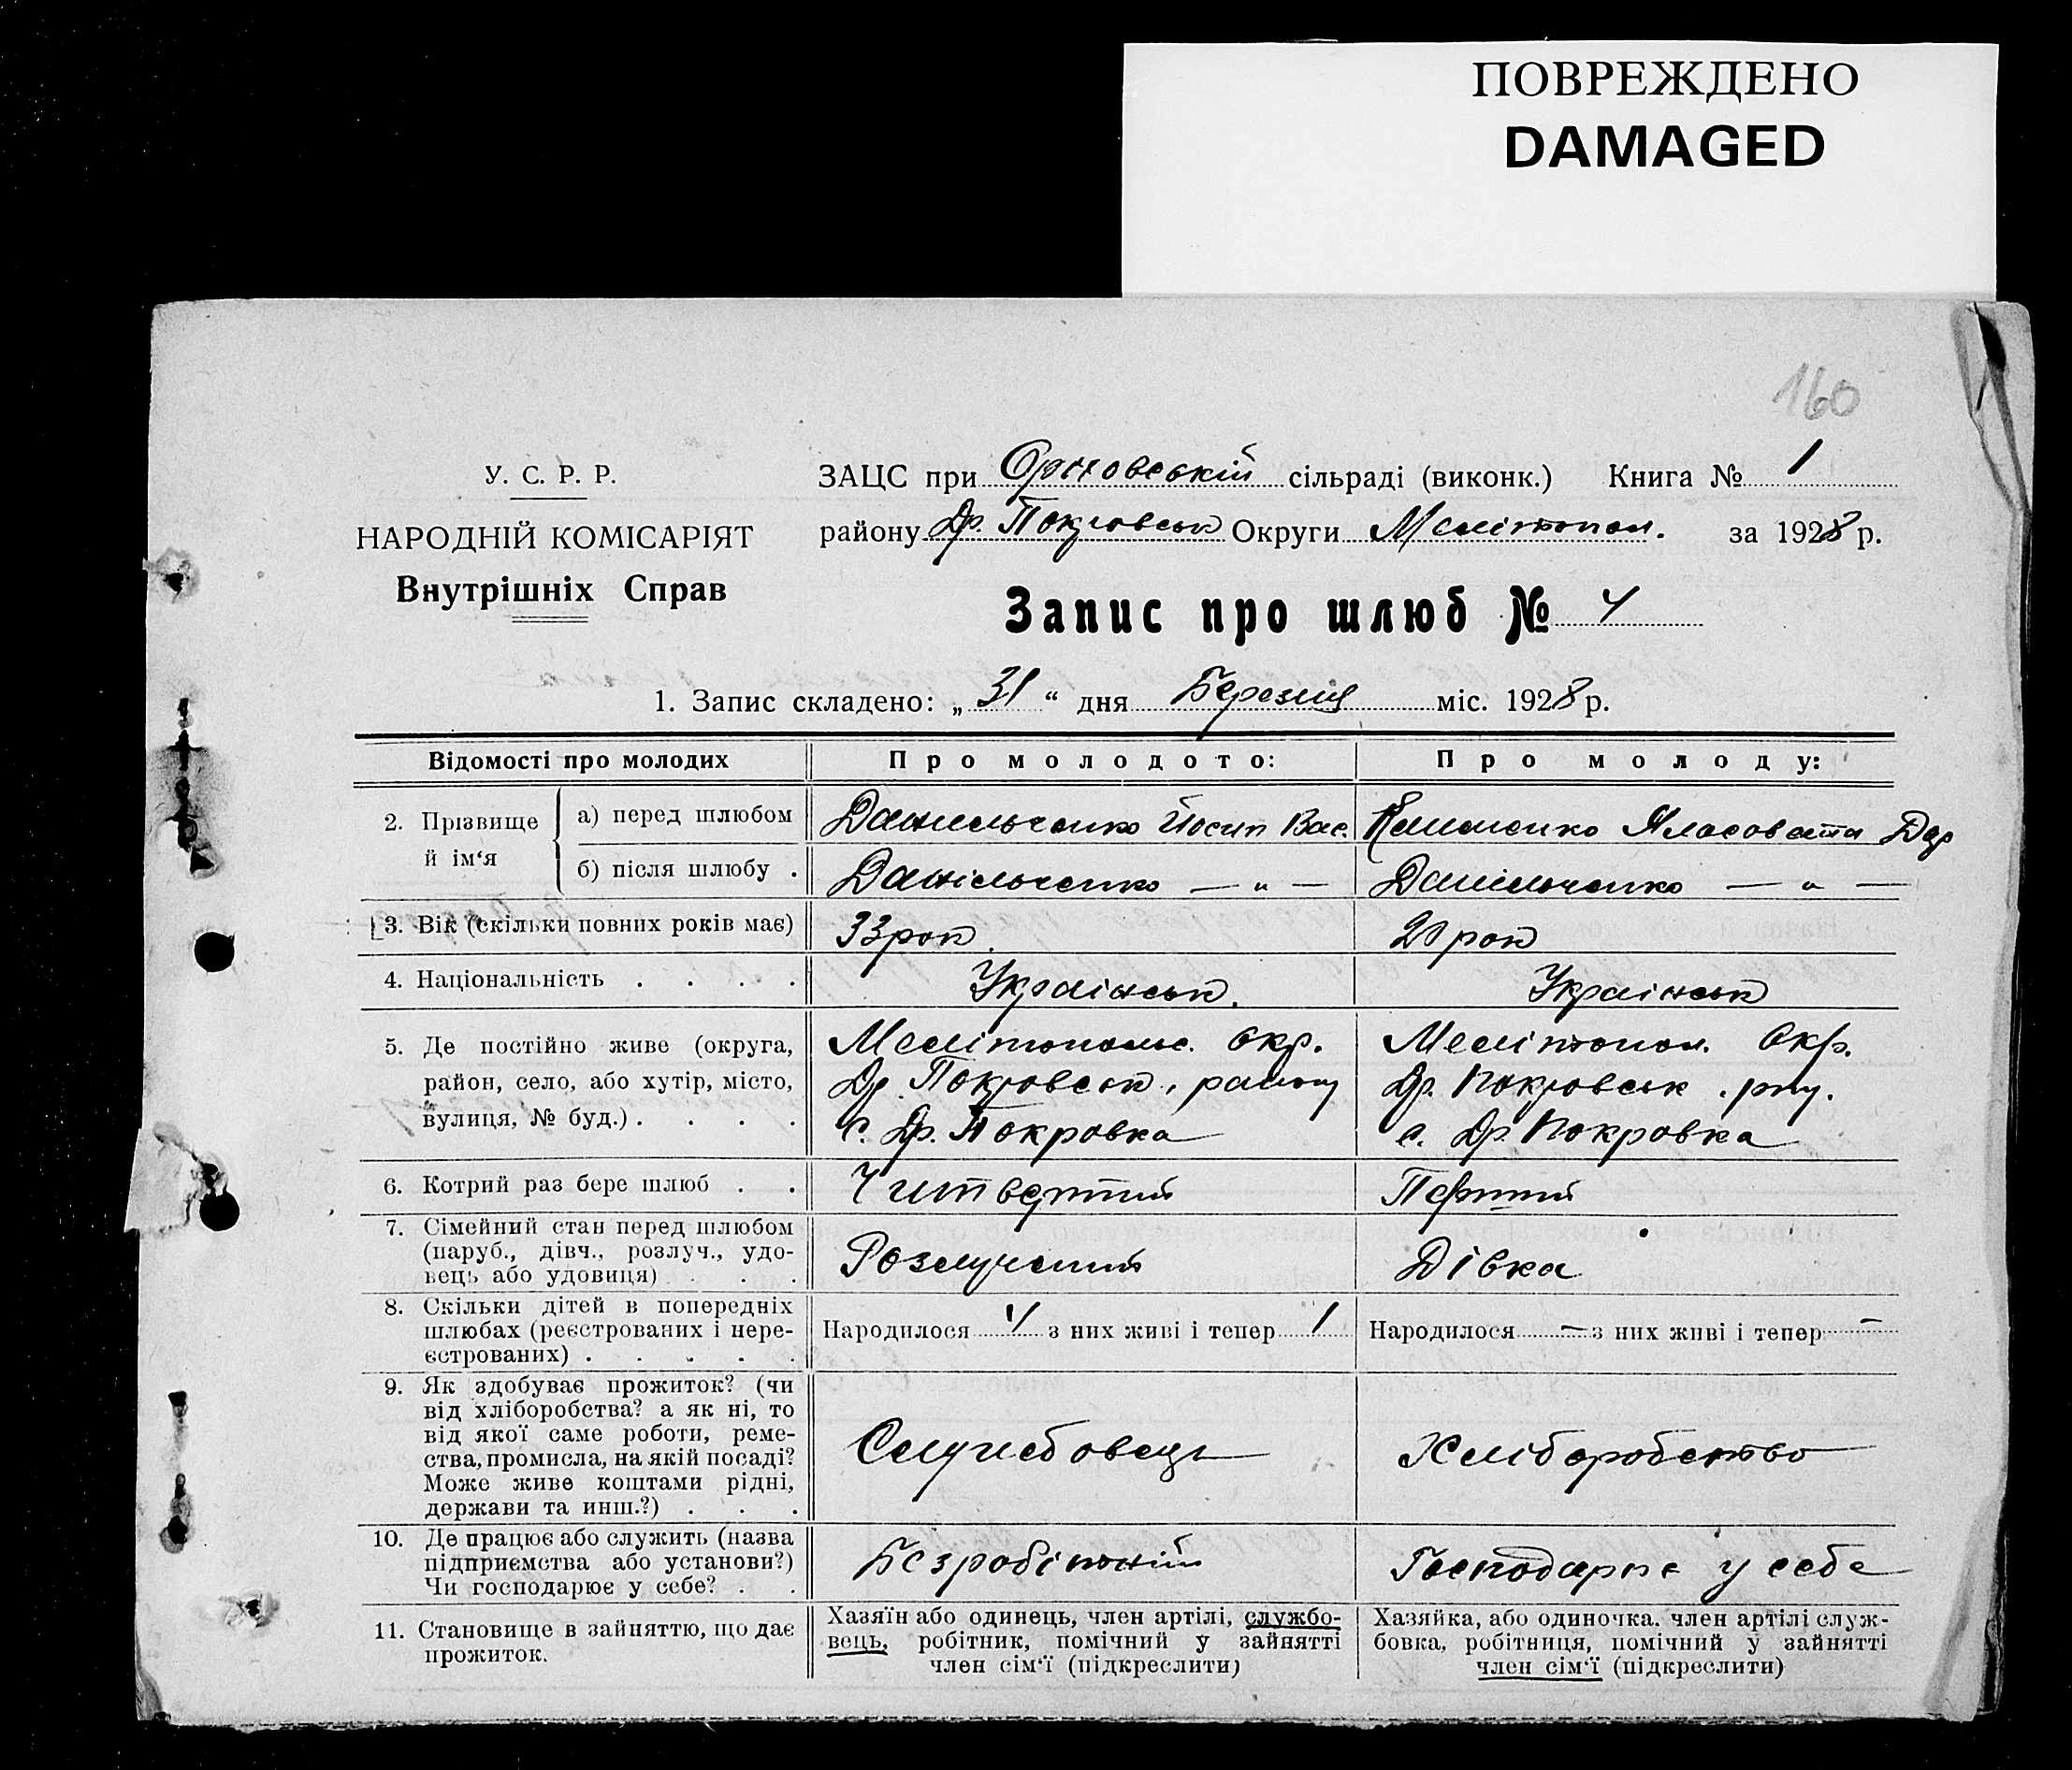 ПОВРЕЖДЕНО
DAMAGED
160
У. С. Р. Р.
НАРОДНІЙ КОМІСАРІЯТ
Внутрішніх Справ
ЗАЦС при сільраді (виконк.) Книга № 1
району Др. Покровськ Округи Мелітопол. за 1928 р.
Запис про шлюб № 4
1. Запис складено: „ 31 “ дня Березня міс. 1928 р.
Відомості про молодих
Про молодого:
Про молоду:
2. Прізвище й ім‘я
а) перед шлюбом
Данильченко Йосип Вас.
б) після шлюбу .
Данільченко — „ —
Данільченко — „ —
3. Вік (скільки повних років має)
33 рок
20 рок
4. Національність . . . .
Українськ.
Українськ
5. Де постійно живе (округа,
район, село, або хутір, місто,
вулиця, № буд.) . . . .
Мелітопольс. Окр.
Др. Покровськ. району
с. Др. Покровка
Мелітопол. Окр.
Др. Покровськ. рну.
с. Др. Покровка
6. Котрий раз бере шлюб . .
Читвертий
Перший
7. Сімейний стан перед шлюбом
(паруб., дівч., розлуч., удо-
вець або удовиця) . . .
Розлучений
Дівка
8. Скільки дітей в попередніх
шлюбах (реєстрованих і нере-
єстрованих) . . . . .
Народилося 4 з них живі і тепер 1
Народилося — з них живі і тепер —
9. Як здобуває прожиток? (чи
від хліборобства? а як ні, то
від якої саме роботи, реме-
ства, промисла, на якій посаді?
Може живе коштами рідні,
держави та инш.?) . . .
Служебовець
Хліборобство
10. Де працює або служить (назва
підприємства або установи?)
Чи господарює у себе? . .
Безробітній
Господарює у себе
11. Становище в зайняттю, що дає
прожиток.
Хазяїн або одинець, член артілі, службо-
вець, робітник, помічний у зайнятті
член сім‘ї (підкреслити)
Хазяйка, або одиночка. член артілі служ-
бовка, робітниця, помічний у зайнятті
член сім‘ї (підкреслити)